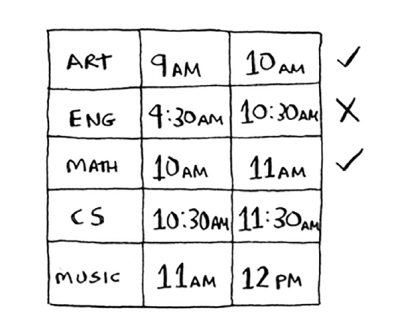 ART 9AM 10AM ✓
ENG 9:30AM 10:30AM X
MATH 10AM 11AM ✓
CS 10:30AM 11:30AM
MUSIC 11AM 12PM